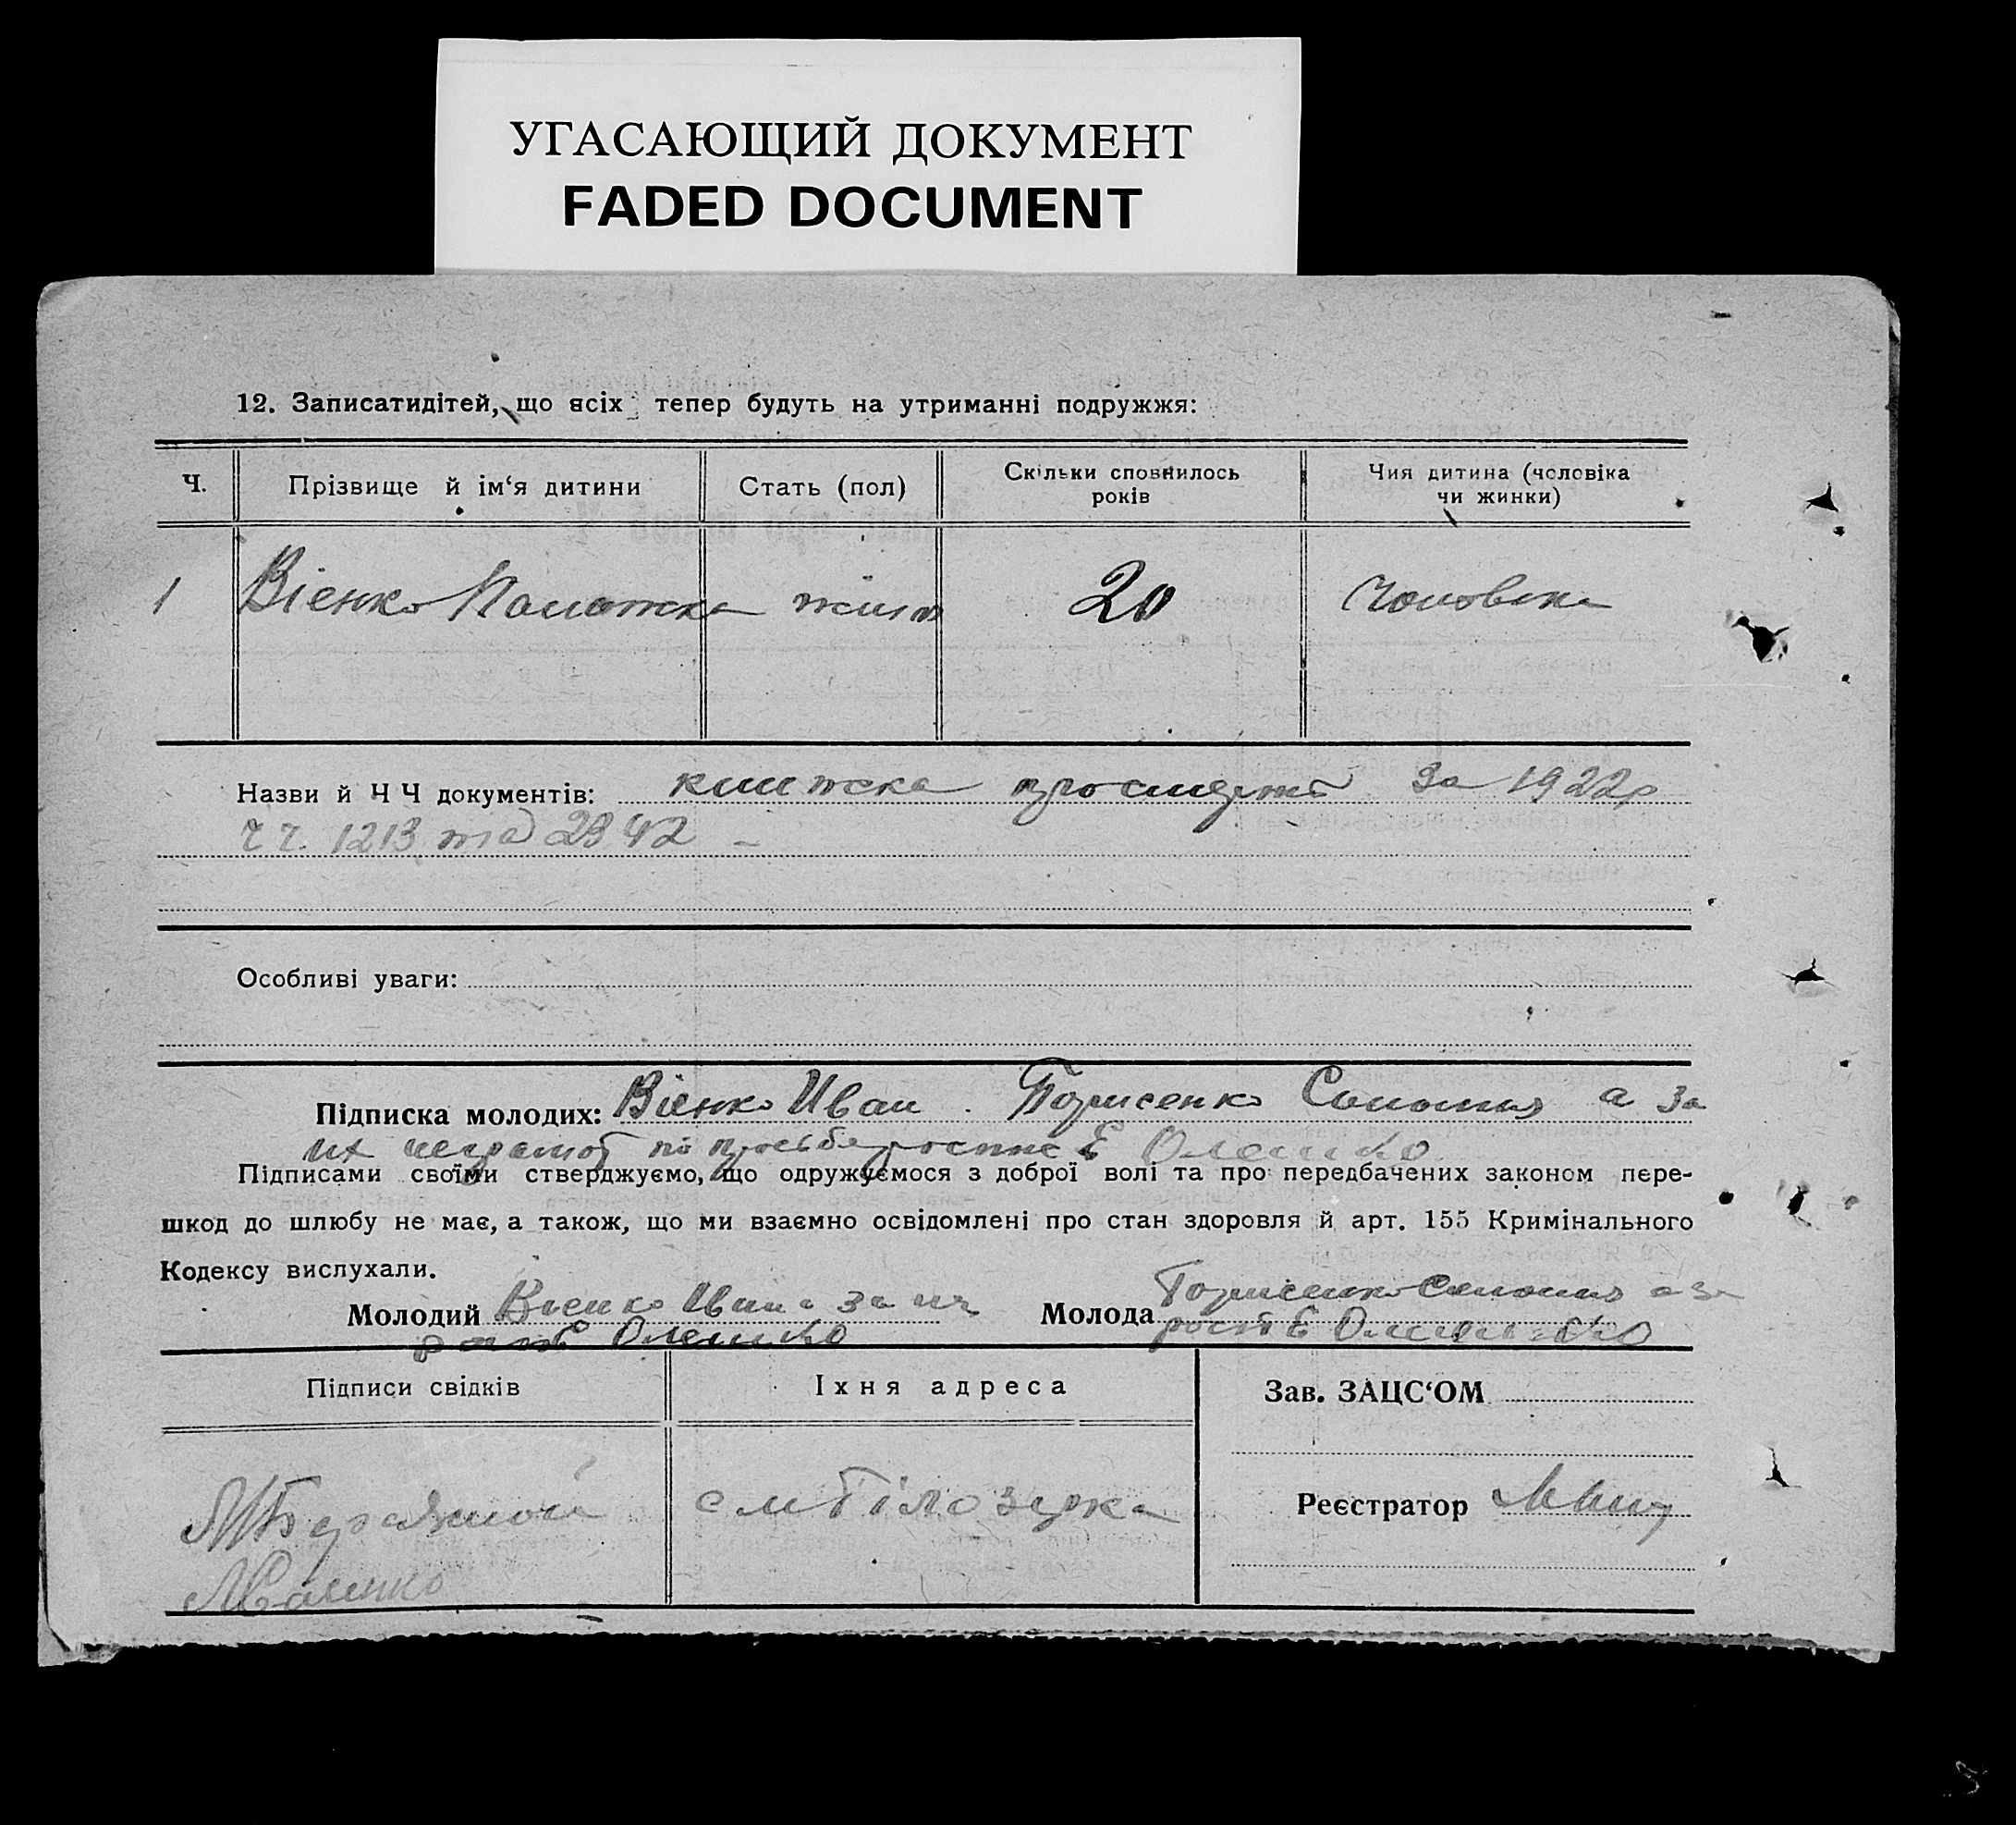 УГАСАЮЩИЙ ДОКУМЕНТ
FADED DOCUMENT
12. Записатидітей, що всіх тепер будуть на утриманні подружжя:
Ч.
Прізвище й ім‘я дитини
Стать (пол)
Скільки сповнилось
років
Чия дитина (чоловіка
чи жинки)
1 Вієнко Палажка жіноч 20 Чоловека
Назви й Ч Ч документів: книжка за 1922р
ч ч. 1213 та 2342 -
Особливі уваги:
Підписка молодих: Вієнко Иван. Борисенко Соломия а за
их неграмот по просьбе роспис Е Олешко
Підписами своїми стверджуємо, що одружуємося з доброї волі та про передбачених законом пере-
шкод до шлюбу не має, а також, що ми взаємно освідомлені про стан здоровля й арт. 155 Кримінального
Кодексу вислухали.
Молодий Виенко Иван а за их
Е Олешко
Молода Борисенко Соломия а за
росп Е
Підписи свідків
Іхня адреса
Зав. ЗАЦС‘ОМ
см Білозірка
Реєстратор